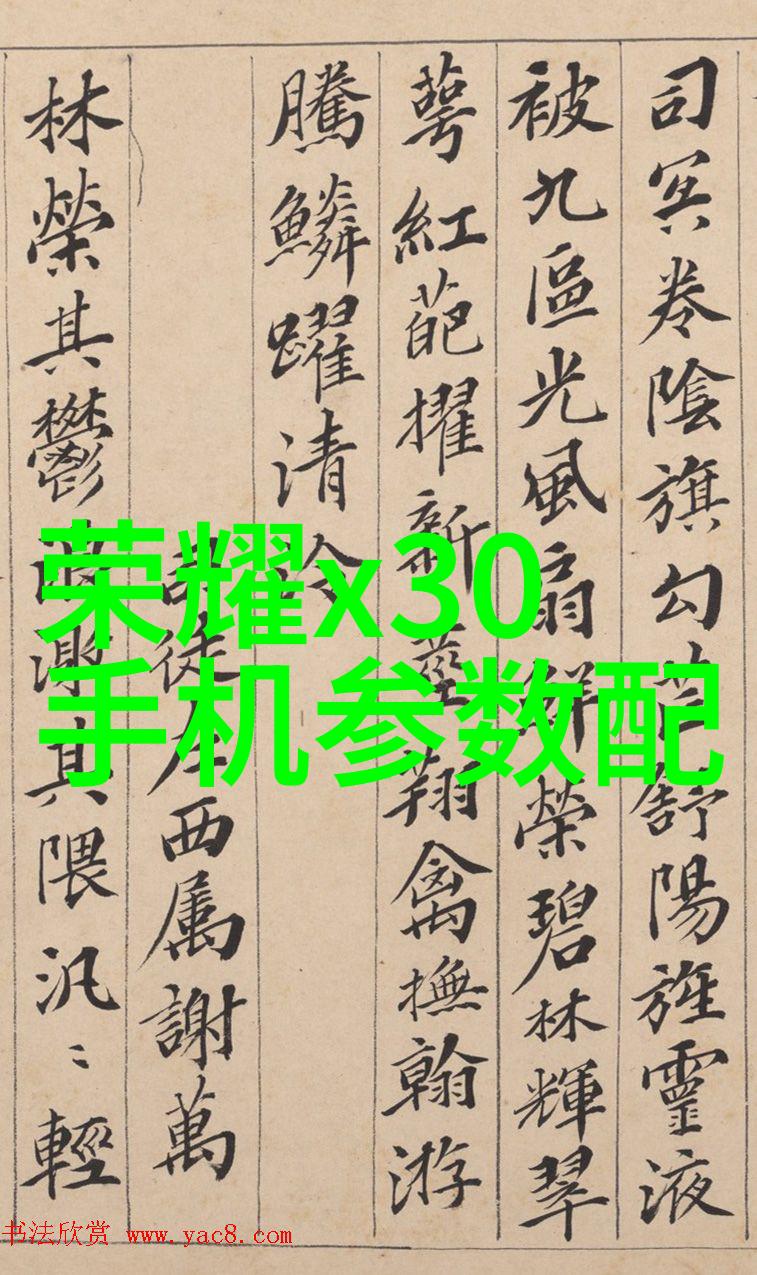 司冥卷陰旗勾芒舒陽旌靈液
被九區光風扇鮮榮碧林輝翠
萼紅葩擢新莖翔禽撫翰游
騰鱗躍清泠
司徒左西属謝萬
林榮其鬱浪激其隈汎〻輕
荣耀x30
手机参数配
书法欣赏 www.yac8.com